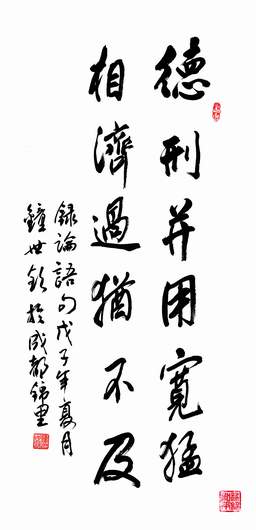 德刑并用寬猛
相濟過猶不及
録論語句戊子年夏月
鐘世欽於成都錦里